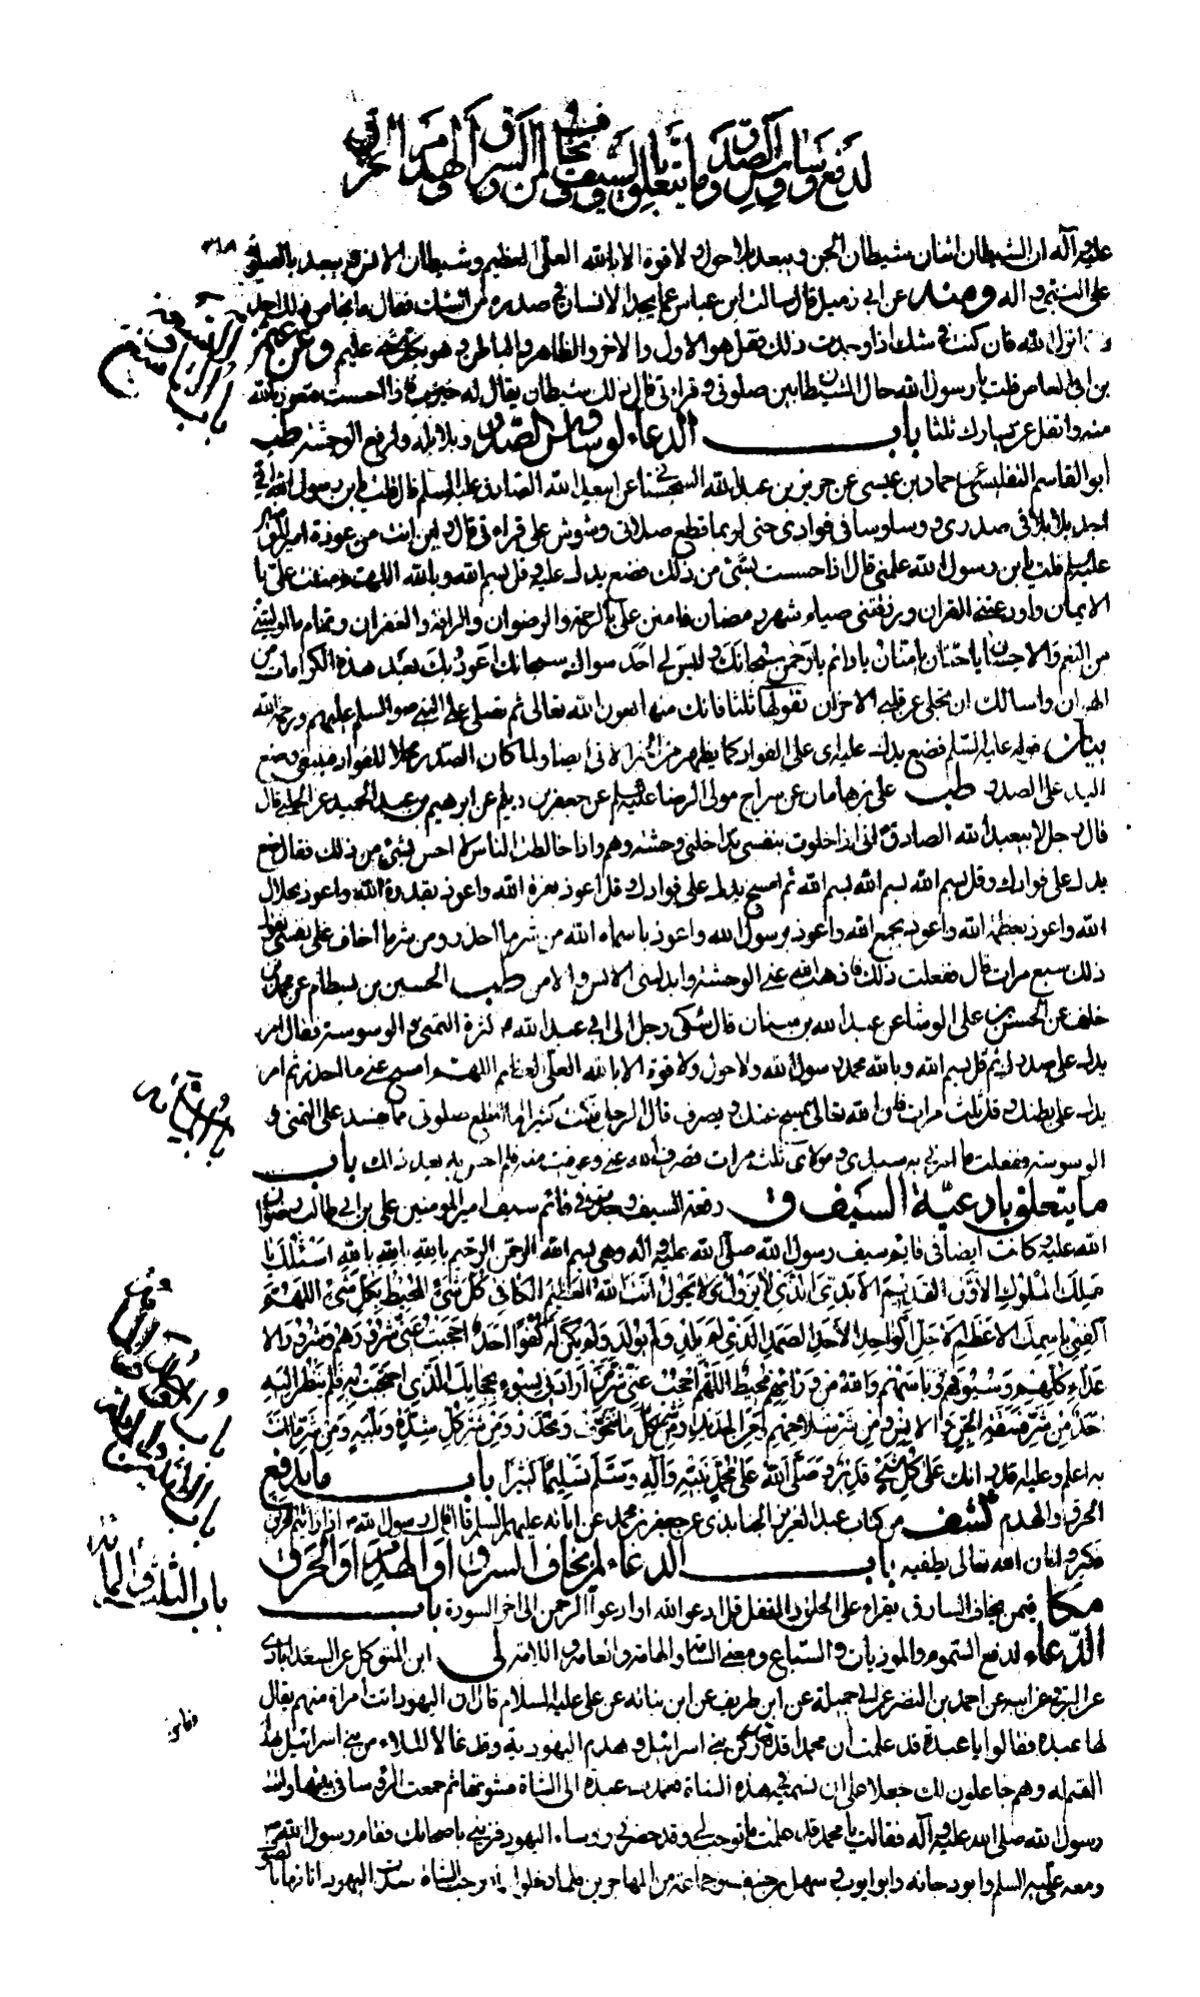 لدفع وساوس الصدر وما يتعلق بالسيف وفي من يخاف السرق والهدم والحرق
عليه وآله ان الشيطان اثنان شيطان الجن ويبعد بلا حول ولا قوة الا بالله العلي العظيم وشيطان الانس ويبعد بالصلوة
على النبي وآله ومنه عن ابي زميل قال سالت ابن عباس عما يجد الانسان في صدره من الشك فقال ما نجا من ذلك احد
انزل الله فان كنت في شك اذا وجدت ذلك فقل هو الاول والاخر والظاهر والباطن وهو بكل شئ عليم وعن عثمن
بن ابي العاص قلت يا رسول الله حال الشيطان بين صلوتي وقراءتي قال ذلك شيطان يقال له خنزب فاذا احسست به فتعوذ بالله
منه واتفل عن يسارك ثلثا باب الدعاء لوساوس الصدر وبلابله ولرفع الوحشة طب
ابو القاسم التفليسي حماد بن عيسى عن حريز بن عبد الله السجستاني عن ابيعبد الله الصادق عليه السلم قال قلت يا بن رسول الله اني
اجد بلابلا في صدري ووساوسا في فوادي حتى لربما قطع صلاتي وشوش علي قراءتي قال واين انت من عوذة امير المؤمنين
عليه السلم قلت يا بن رسول الله علمني قال اذا احسست بشئ من ذلك فضع يدك عليه وقل بسم الله وبالله اللهم مننت علي با
الايمان واودعتني القران ورزقتني صيام شهر رمضان فامنن علي بالرحمة والرضوان والرافة والغفران وتمام ما اوليتني
من النعم والاحسان يا حنان يا منان يا دائم يا رحمن سبحانك وليس لي احد سواك سبحانك اعوذ بك بعد هذه الكرامات من
الهوان واسالك ان تجلى عن قلبي الاحزان تقولها ثلثا فانك تعافى منها بعون الله تعالى ثم تصلي على النبي صلوات الله عليهم ورحمة الله
بيان قوله عليه السلم فضع يدك عليه اي على الفواد كما يظهر من الخبر الاتي ايضا ولما كان الصدر محلا للفواد فينبغي وضع
اليد على الصدر طب علي بن ماهان عن سراج مولى الرضا عليه السلم عن جعفر بن ديلم عن ابرهيم بن عبد الحميد عن الحلبي قال
قال رجل لابيعبد الله الصادق اني اذا خلوت بنفسي تداخلني وحشة وهم واذا خالطت الناس لا احس بشئ من ذلك فقال ضع
يدك على فوادك وقل بسم الله بسم الله بسم الله ثم امسح يدك على فوادك وقل اعوذ بعزة الله واعوذ بقدرة الله واعوذ بجلال
الله واعوذ بعظمة الله واعوذ بجمع الله واعوذ برسول الله واعوذ باسماء الله من شر ما احذر ومن شر ما اخاف على نفسي تقول
ذلك سبع مرات قال ففعلت ذلك فاذهب الله عني الوحشة وابدلني الانس والامن طب الحسين بن بسطام عن محمد بن
خلف عن الحسن بن علي الوشا عن عبد الله بن سنان قال شكى رجل الى ابي عبد الله كثرة التمني والوسوسة فقال امر
يدك على صدرك ثم قل بسم الله وبالله محمد رسول الله ولا حول ولا قوة الا بالله العلي العظيم اللهم امسح عني ما احذر ثم امر
يدك على بطنك وقل ثلث مرات فان الله تعالى يمسح عنك ويصرف قال الرجل فكنت كثيرا ما اقطع صلوتي مما يفسد علي التمني و
الوسوسة ففعلت ما امرني به سيدي ومولاي ثلث مرات فصرف الله عني وعوفيت منه فلم احس به بعد ذلك باب
ما يتعلق بادعية السيف ق رقعة السيف وجدت في قائم سيف امير المومنين علي بن ابي طالب رضوان
الله عليه وكانت ايضا في قايم سيف رسول الله صلى الله عليه وآله وهي بسم الله الرحمن الرحيم بالله بالله بالله اسئلك يا
ملك الملوك الاول القديم الابدي الذي لا يزول ولا يحول انت الله العظيم الكافي كل شئ المحيط بكل شئ اللهم
اكفني باسمك الاعظم الاجل الواحد الاحد الصمد الذي لم يلد ولم يولد ولم يكن له كفوا احد احجب عني شرورهم وشرور الا
عداء كلهم وسيوفهم وباسهم والله من ورائهم محيط اللهم احجب عني شر من ارادني بسوء بحجابك الذي احتجبت به فلم ينظر اليه
احد من شر فسقة الجن والانس ومن شر سلاحهم ومن الحديد ومن كل ما يتخوف ويحذر ومن شر كل شدة وبلية ومن شر ما انت
به اعلم وعليه اقدر انك على كل شئ قدير وصلى الله على محمد نبيه وآله وسلم تسليما كثيرا باب ما يدفع
الحرق والهدم كشف من كتاب عبد العزيز الجنابذي عن جعفر بن محمد عن ابائه عليهم السلم قال قال رسول الله اذا رايتم الحريق
فكبروا فان الله تعالى يطفيه باب الدعاء لمن يخاف السرق او الهدم او الحرق
مكا فيمن يخاف السارق يقراء على الحلق والقفل قل ادعوا الله او ادعوا الرحمن الى اخر السورة باب
الدعاء لدفع السموم والموذيات والسباع ومعنى السامة والهامة والعامة واللامة لي ابن المتوكل عن السعدابادي
عن البرقي عن ابيه عن احمد بن النضر عن ابي جميلة عن ابن طريف عن ابن نباته عن علي عليه السلام قال ان اليهود اتت امراة منهم يقال
لها عبدة فقالوا يا عبدة قد علمت ان محمدا قد هد ركن بني اسرائيل وهدم اليهودية وقد غالا الملاء من بني اسرائيل بهذا
السم له وهم جاعلون لك جعلا على ان تسميه في هذه الشاة فعمدت عبدة الى الشاة فشوتها ثم جمعت الرؤساء في بيتها واتت
رسول الله صلى الله عليه وآله فقالت يا محمد قد علمت ما توجب لي وقد حضرني رؤساء اليهود فزيني باصحابك فقام رسول الله
ومعه علي عليه السلم وابو دجانه وابو ايوب وسهل بن حنيف وجماعة من المهاجرين فلما دخلوا واخرجت الشاة سدت اليهود انافها با
لصوف